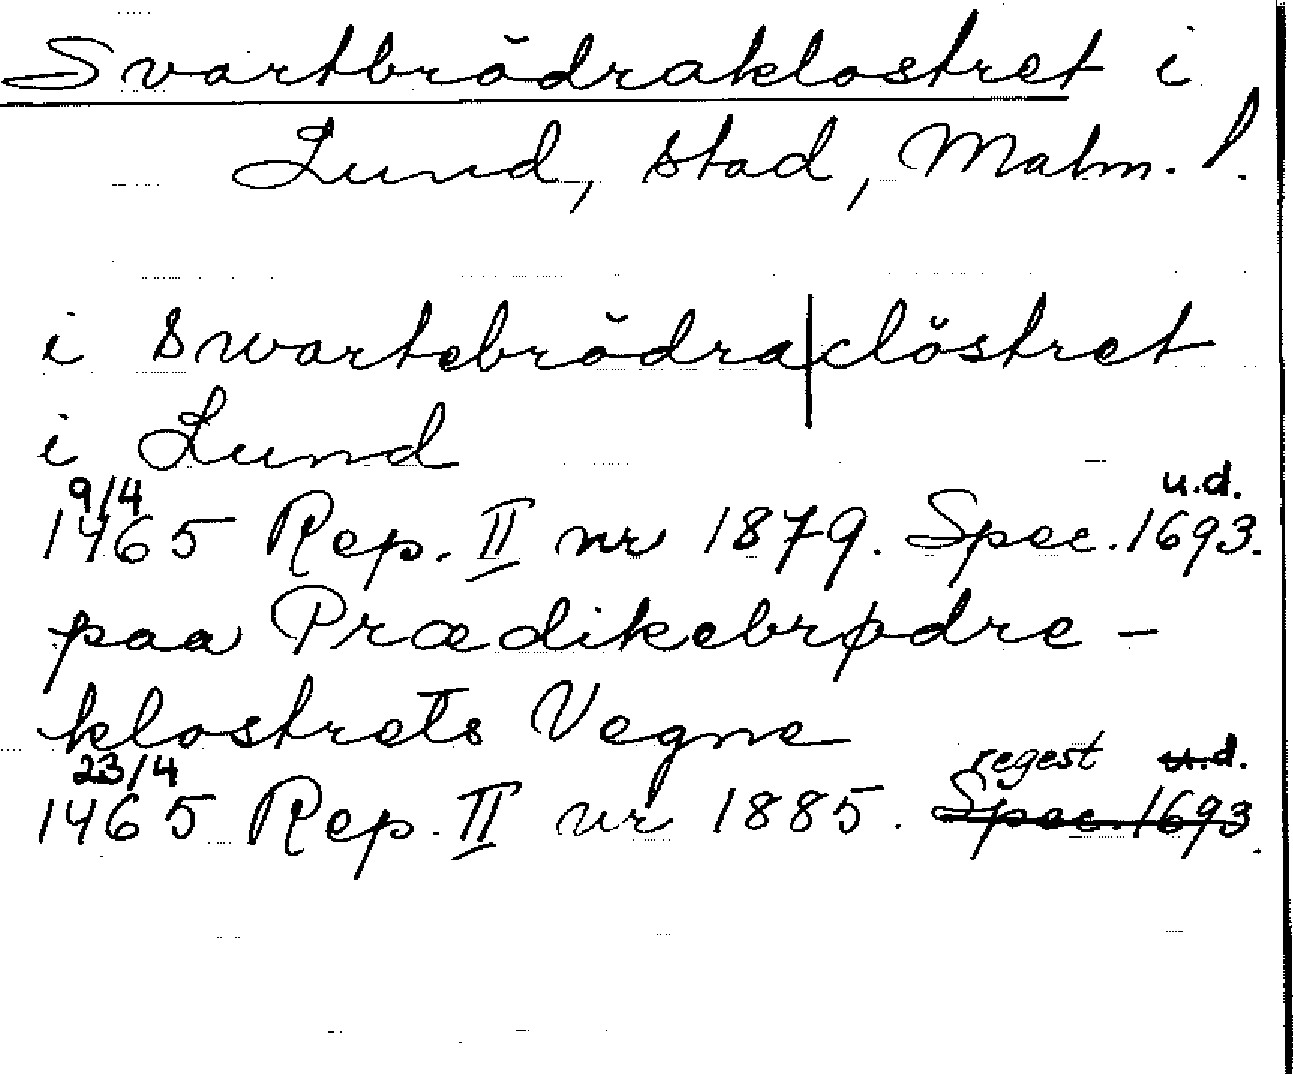 Svartbrödraklostret i
Lund, stad, Malm. l.
i Swartebrödra|clöstret
i Lund
9/4 u.d.
1465 Rep. II nr 1879. Spec. 1693.
paa Prædikebrødre-
klostrets Vegne
23/4 regest u.d.
1465 Rep. II nr 1885. Spec. 1693.